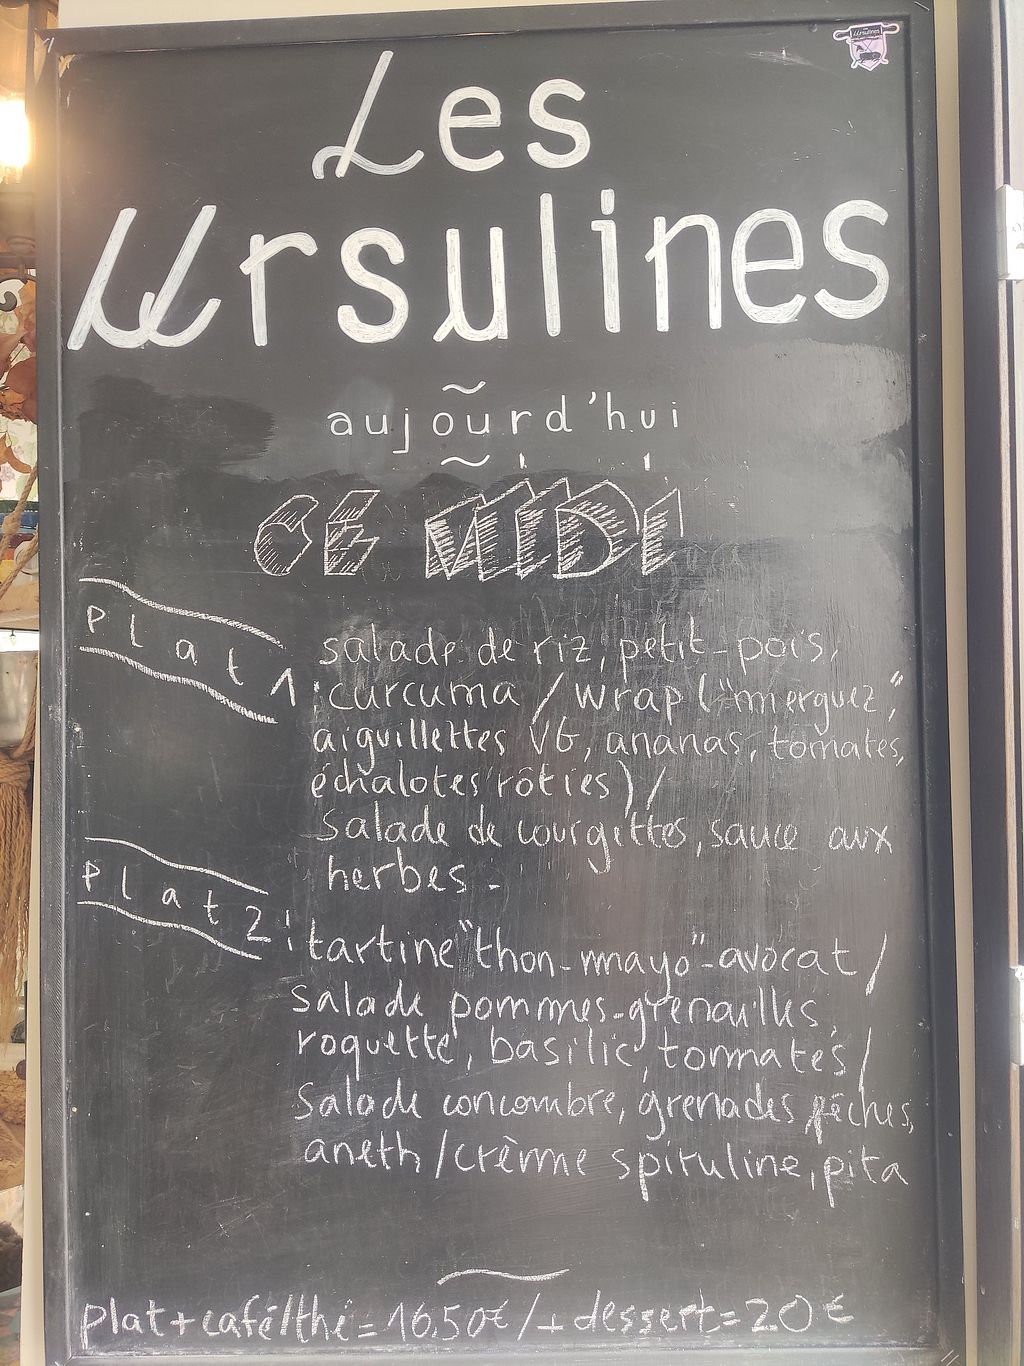 Ursulines
Les
Ursulines
aujourd'hui
CE MIDI
Plat 1 : salade de riz, petit-pois,
curcuma / wrap ("merguez",
aiguillettes VG, ananas, tomates,
échalotes rôties) /
Salade de courgettes, sauce aux
herbes -
Plat 2 : tartine "thon-mayo"-avocat /
Salade pommes-grenailles,
roquette, basilic, tomates /
Salade concombre, grenades, pêches,
aneth / crème spiruline, pita
plat + café/thé = 16,50€ / + dessert = 20€